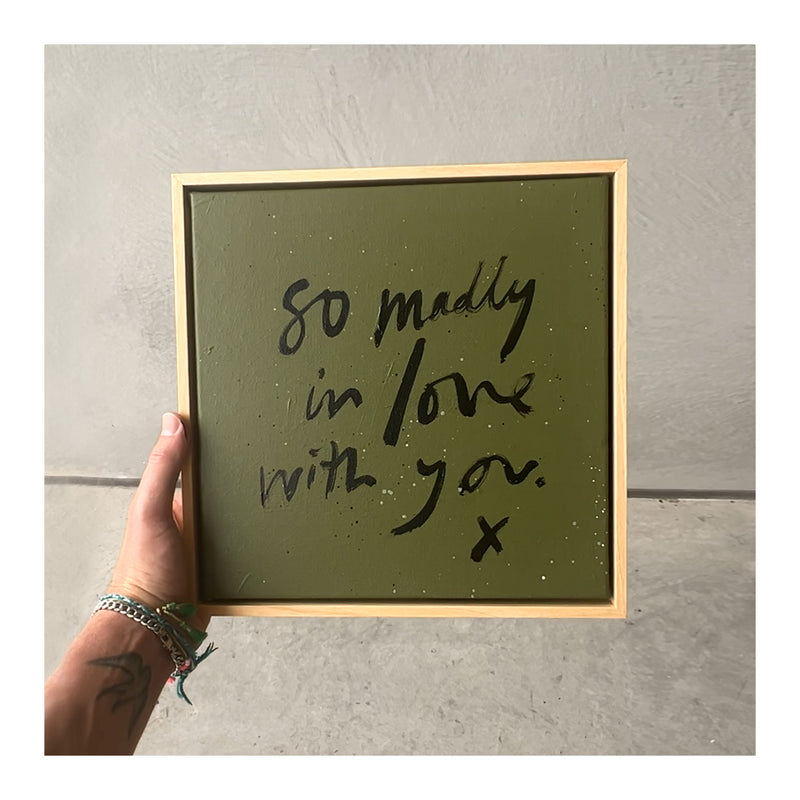 so madly
in love
with you.
x